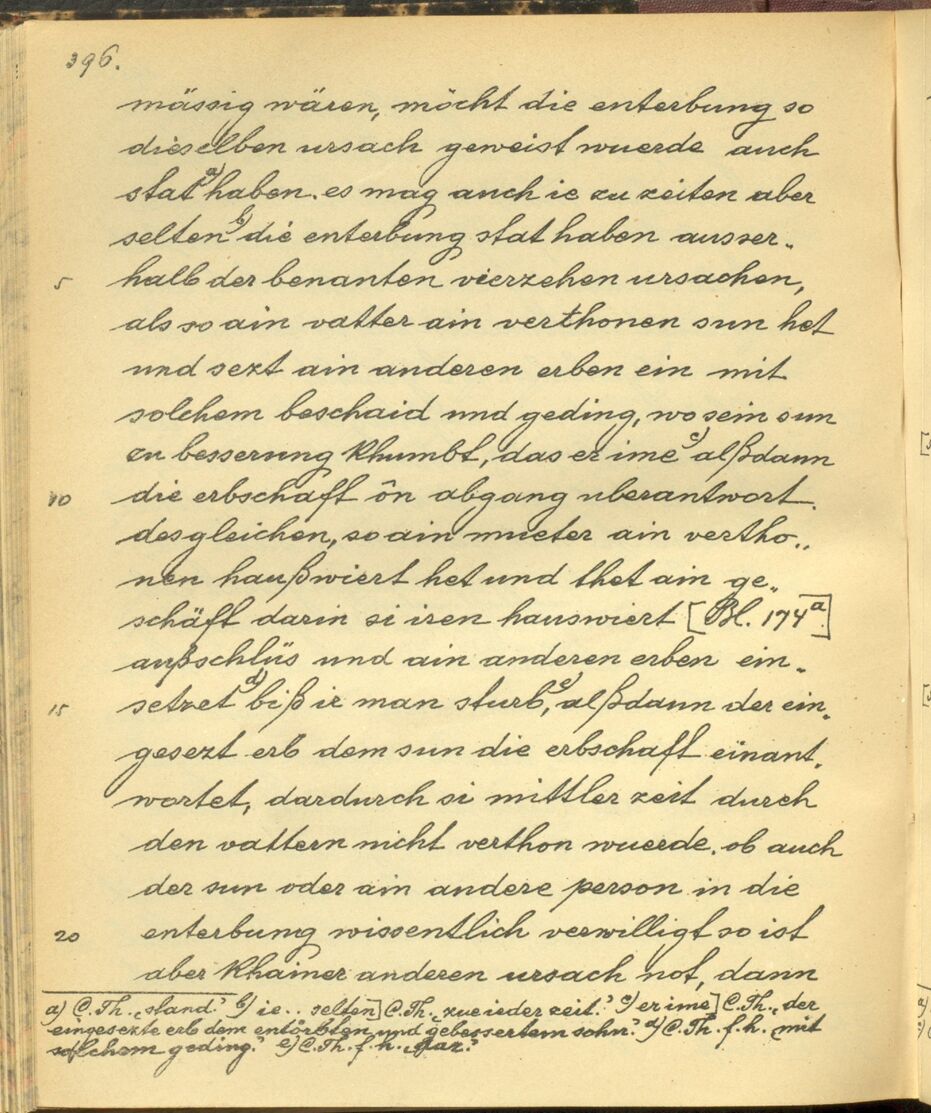 396.
mässig wären, möcht die enterbung so
dieselben ursach geweist wuerde auch
stat a) haben. es mag auch ie zu zeiten aber
selten b) die enterbung stat haben ausser„
5 halb der benanten vierzehen ursachen,
als so ain vatter ain verthonen sun het
und sezt ain anderen erben ein mit
solchem beschaid und geding, wo sein sun
zu besserung khumbt, das er ime c) alßdann
10 die erbschaft ôn abgang uberantwort.
desgleichen, so ain mueter ain vertho„
nen haußwiert het und thet ain ge„
schäft darin si iren hauswiert [Bl. 174a]
außschlüs und ain anderen erben ein„
15 setzet d) biß ir man sturb, e) alßdann der ein„
gesezt erb dem sun die erbschaft einant„
wortet, dardurch si mittler zeit durch
den vattern nicht verthon wuerde. ob auch
der sun oder ain andere person in die
20 enterbung wissentlich verwilligt so ist
aber khainer anderen ursach not, dann
a) C. Th. „stand.“ b) ie.. selten] C. Th. „zue ieder zeit.“ c) er ime] C. Th. „der
eingesezte erb dem entörbten und gebessertem sohn.“ d) C. Th. f. h. „mit
solchem geding.“ e) C. Th. f. h. „gar.“